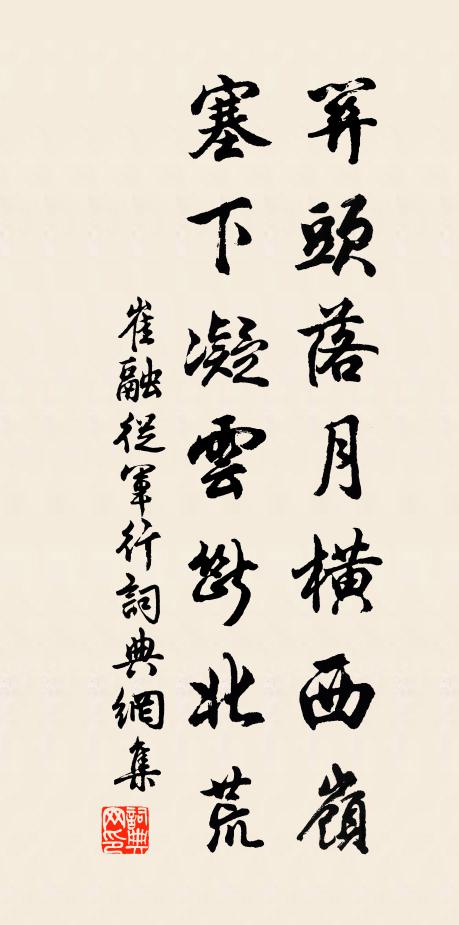 筓頭落月橫西嶺
塞下凝雲斷北荒
崔融從軍行詞典網集
詞典网印